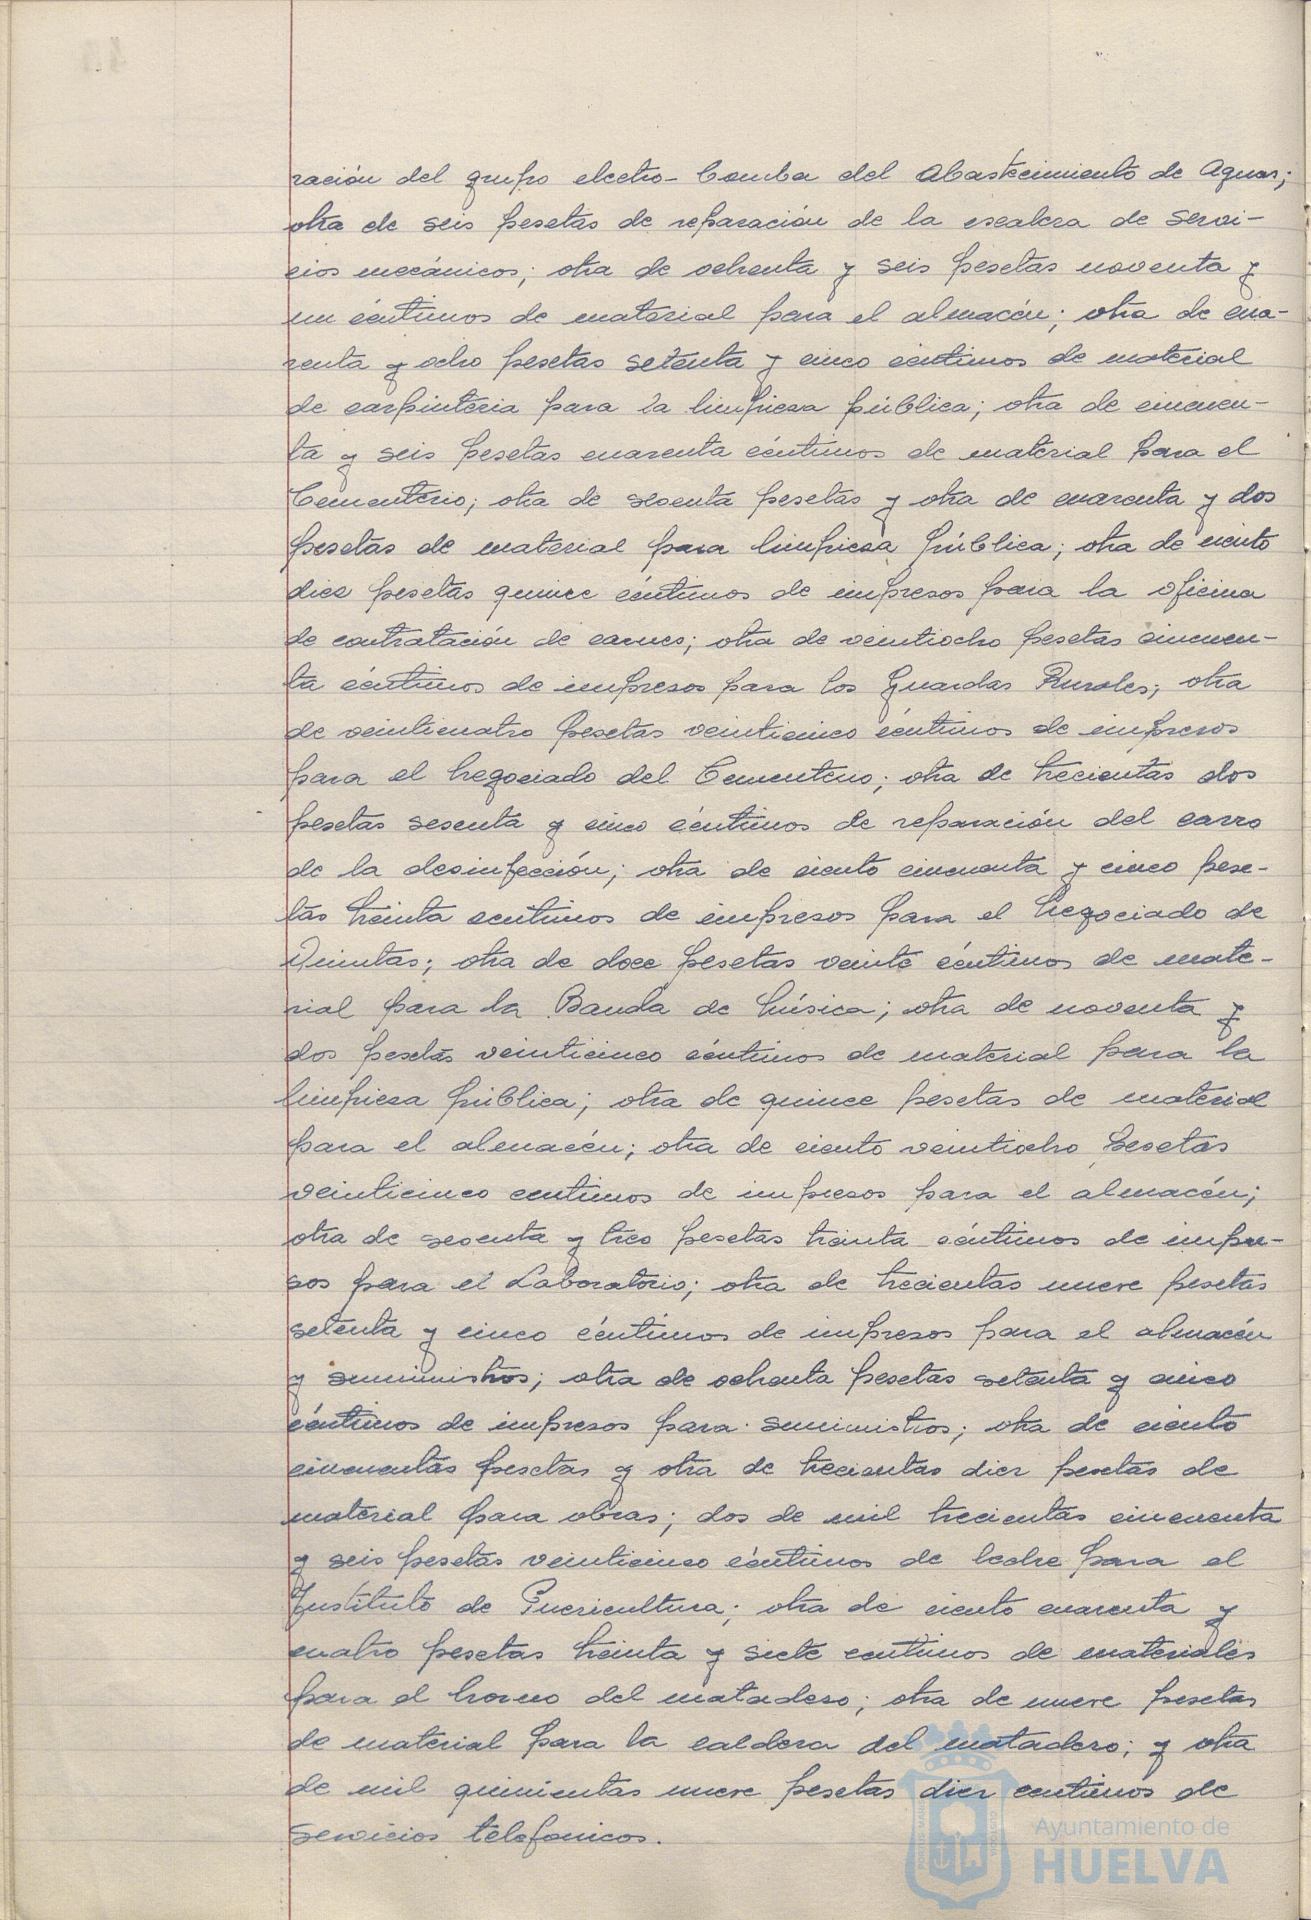 ración del grupo electro-bomba del Abastecimiento de Aguas;
otra de seis pesetas de reparación de la escalera de servi-
cios mecánicos; otra de ochenta y seis pesetas noventa y
un céntimos de material para el almacén; otra de cua-
renta y ocho pesetas setenta y cinco centimos de material
de carpinteria para la limpiesa pública; otra de cincuen-
ta y seis pesetas cuarenta céntimos de material para el
Cementerio; otra de sesenta pesetas y otra de cuarenta y dos
pesetas de material para limpiesa pública; otra de ciento
diez pesetas quince céntimos de impresos para la oficina
de contratación de carnes; otra de veintiocho pesetas cincuen-
ta céntimos de impresos para los Guardas Rurales; otra
de veinticuatro pesetas veinticinco céntimos de impresos
para el Negociado del Cementerio; otra de trecientas dos
pesetas sesenta y cinco céntimos de reparación del carro
de la desinfección; otra de ciento cincuenta y cinco pese-
tas treinta centimos de impresos para el Negociado de
Quintas; otra de doce pesetas veinte céntimos de mate-
rial para la Banda de Música; otra de noventa y
dos pesetas veinticinco céntimos de material para la
limpiesa pública; otra de quince pesetas de material
para el almacén; otra de ciento veintiocho pesetas
veinticinco centimos de impresos para el almacén;
otra de sesenta y tres pesetas treinta céntimos de impre-
sos para el Laboratorio; otra de trecientas nueve pesetas
setenta y cinco céntimos de impresos para el almacén
y suministros; otra de ochenta pesetas setenta y cinco
céntimos de impresos para suministros; otra de ciento
cincuentas pesetas y otra de trecientas diez pesetas de
material para obras; dos de mil trecientas cincuenta
y seis pesetas veinticinco céntimos de leche para el
Instituto de Puericultura; otra de ciento cuarenta y
cuatro pesetas treinta y siete centimos de materiales
para el horno del matadero; otra de nueve pesetas
de material para la caldera del matadero; y otra
de mil quinientas nueve pesetas diez centimos de
servicios telefonicos.
Ayuntamiento de
HUELVA